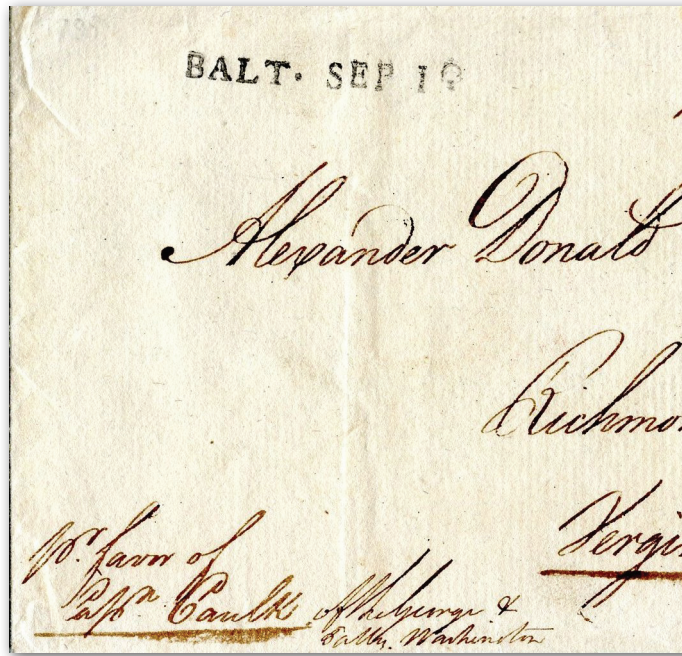 BALT. SEP 1
Alexander Donald
Richmo
Vergi
pr. favor of
Capn Caulk of the George &
Patty. Washington